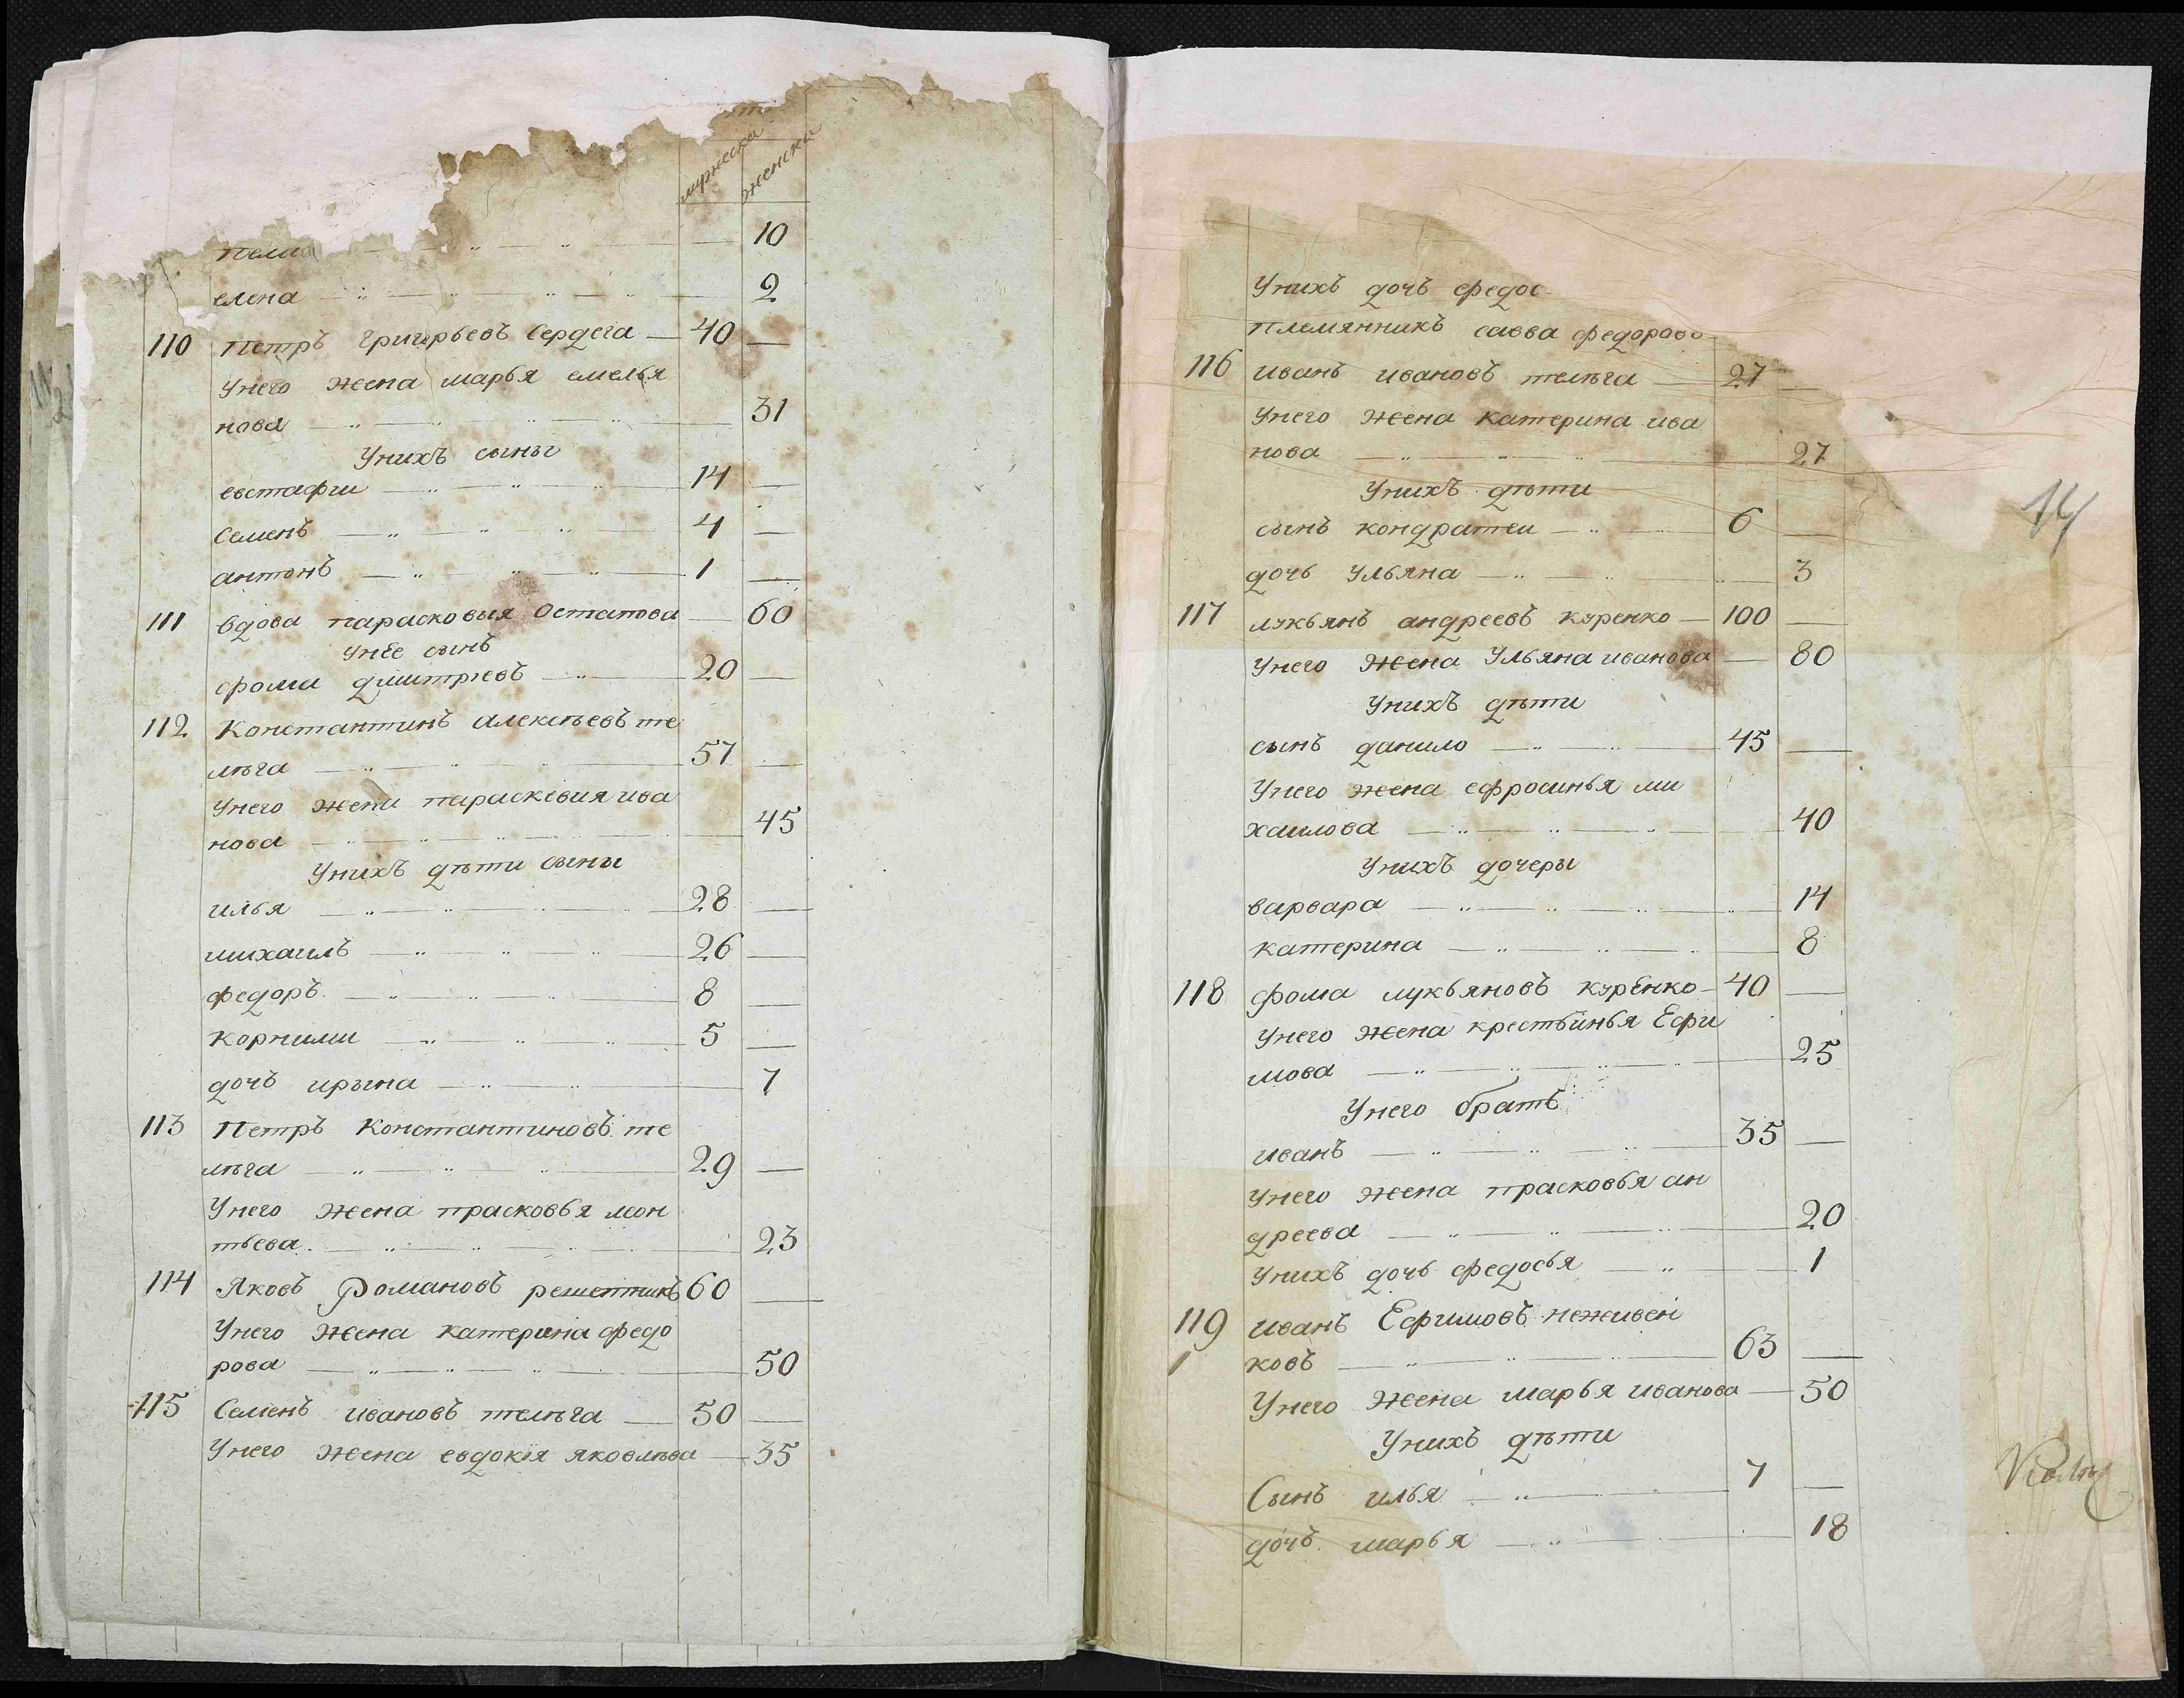 мужеска женска
10
елена 2
110 Петръ Григорьевъ Сердега 40
Унего жена марья емелья
нова 31
Унихъ сыны
евстафии 14
Семенъ 4
антонъ 1
111 вдова парасковия Остапова 60
унее сынъ
фома дмитрiевъ 20
112 Константинъ алексѣевъ те
лѣга 57
Унего жена параскевия ива
нова 45
Унихъ дѣти сыны
илья 28
михаилъ 26
федоръ 8
корнили 5
дочъ ирына 7
113 Петръ Константиновъ те
лѣга 29
Унего жена прасковья леон
тьева 23
114 Яковъ Романовъ решетникъ 60
Унего жена катерина федо
рова 50
115 Семенъ ивановъ телѣга 50
Унего жена евдокiя яковлѣва 35
Унихъ дочъ федос
племянникъ савва федорово
116 иванъ ивановъ телѣга 27
Унего жена катерина ива
нова 27
Унихъ дѣти
сынъ кондратеи 6
дочь ульяна 3
117 лукьянъ андреевъ куренко 100
Унего жена Ульяна иванова 80
Унихъ дѣти
сынъ данило 45
Унего жена ефросинья ми
хаилова 40
Унихъ дочеры
варвара 14
катерина 8
118 фома лукьяновъ куренко 40
Унего жена крестьинья Ефи
мова 25
Унего братъ
иванъ 35
Унего жена прасковья ан
дреева 20
Унихъ дочь федосья 1
119 иванъ Ефимовъ неживен
1 ковъ 63
Унего жена марья иванова 50
Унихъ дѣти
Сынъ илья 7
дочъ марья 18
14